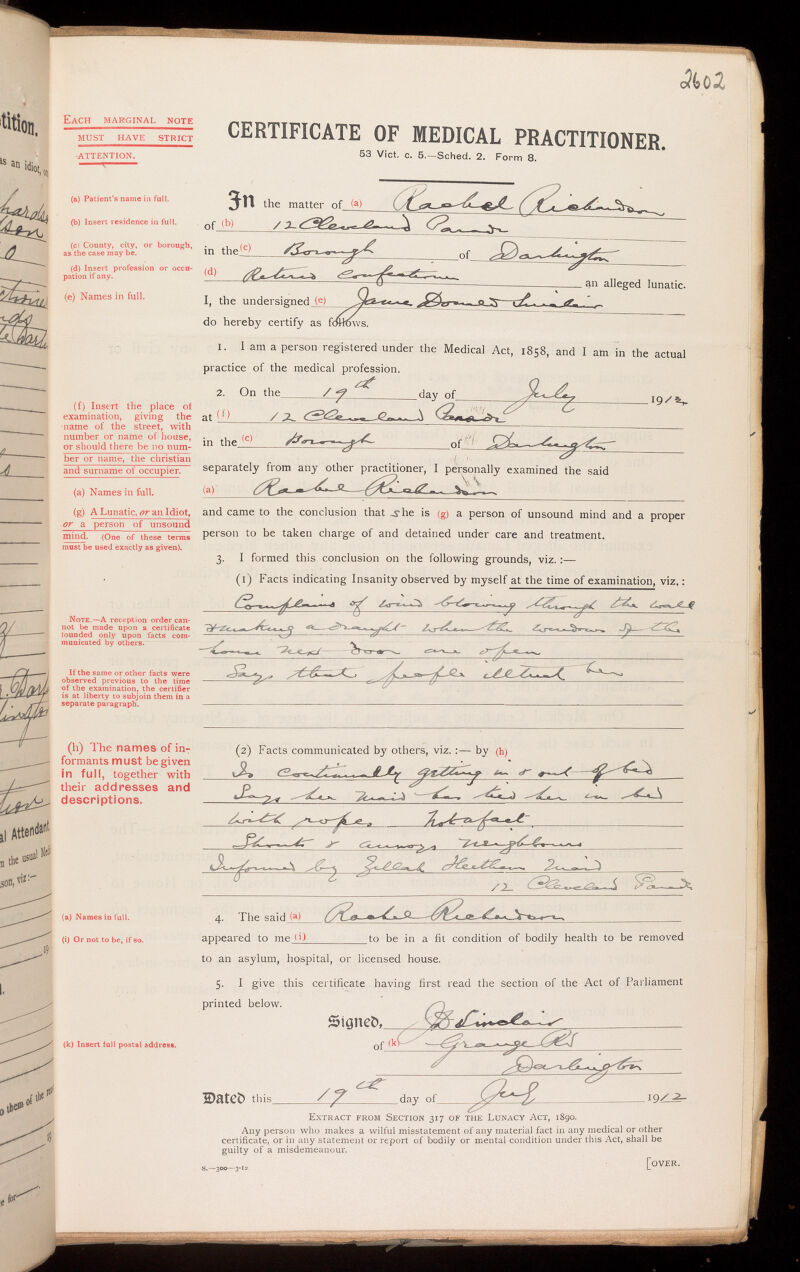 2602
tition.
is an idiot, or
EACH MARGINAL NOTE
MUST HAVE STRICT
ATTENTION.
CERTIFICATE OF MEDICAL PRACTITIONER.
53 Vict. c. 5.—Sched. 2. Form 8.
(a) Patient's name in full.
In the matter of (a) Rachel Richardson
(b) Insert residence in full.
of (b) 12 Cleveland Parade
(c) County, city, or borough,
as the case may be.
in the (c) Borough of Darlington
(d) Insert profession or occu-
pation if any.
(d) Retired Confectioner an alleged lunatic.
(e) Names in full.
I, the undersigned (e) James Donald Sinclair
do hereby certify as follows.
1. I am a person registered under the Medical Act, 1858, and I am in the actual
practice of the medical profession.
2. On the 19th day of July 1912
(f) Insert the place of
examination, giving the
name of the street, with
number or name of house,
or should there be no num-
ber or name, the christian
and surname of occupier.
at (f) 12 Cleveland Parade
in the (c) Borough of Darlington
separately from any other practitioner, I personally examined the said
(a) Names in full.
(a) Rachel Richardson
(g) A Lunatic, or an Idiot,
or a person of unsound
mind. (One of these terms
must be used exactly as given).
and came to the conclusion that she is (g) a person of unsound mind and a proper
person to be taken charge of and detained under care and treatment.
3. I formed this conclusion on the following grounds, viz. :—
(1) Facts indicating Insanity observed by myself at the time of examination, viz. :
Complains of wind blowing through the wall
& making a draught when the windows of the
house next door are open
Says that people illtreat her
NOTE.—A reception order can-
not be made upon a certificate
founded only upon facts com-
municated by others.
If the same or other facts were
observed previous to the time
of the examination, the certifier
is at liberty to subjoin them in a
separate paragraph.
(h) The names of in-
formants must be given
in full, together with
their addresses and
descriptions.
(2) Facts communicated by others, viz. :— by (h)
Is continually getting in & out of bed
Says her maid has tied her in bed
with ropes Not a fact.
Shouts & annoys neighbours
Informed by Zillah Maid
12 Cleveland Parade
al Attendant
n the usual
son, viz :—
(a) Names in full.
4. The said (a) Rachel Richardson
(i) Or not to be, if so.
appeared to me (i) to be in a fit condition of bodily health to be removed
to an asylum, hospital, or licensed house.
5. I give this certificate having first read the section of the Act of Parliament
printed below.
Signed, JD Sinclair
(k) Insert full postal address.
of (k) Grange Rd
Darlington
Dated this 19th day of July 1912
EXTRACT FROM SECTION 317 OF THE LUNACY ACT, 1890.
Any person who makes a wilful misstatement of any material fact in any medical or other
certificate, or in any statement or report of bodily or mental condition under this Act, shall be
guilty of a misdemeanour.
8.—300—3-12
[OVER.